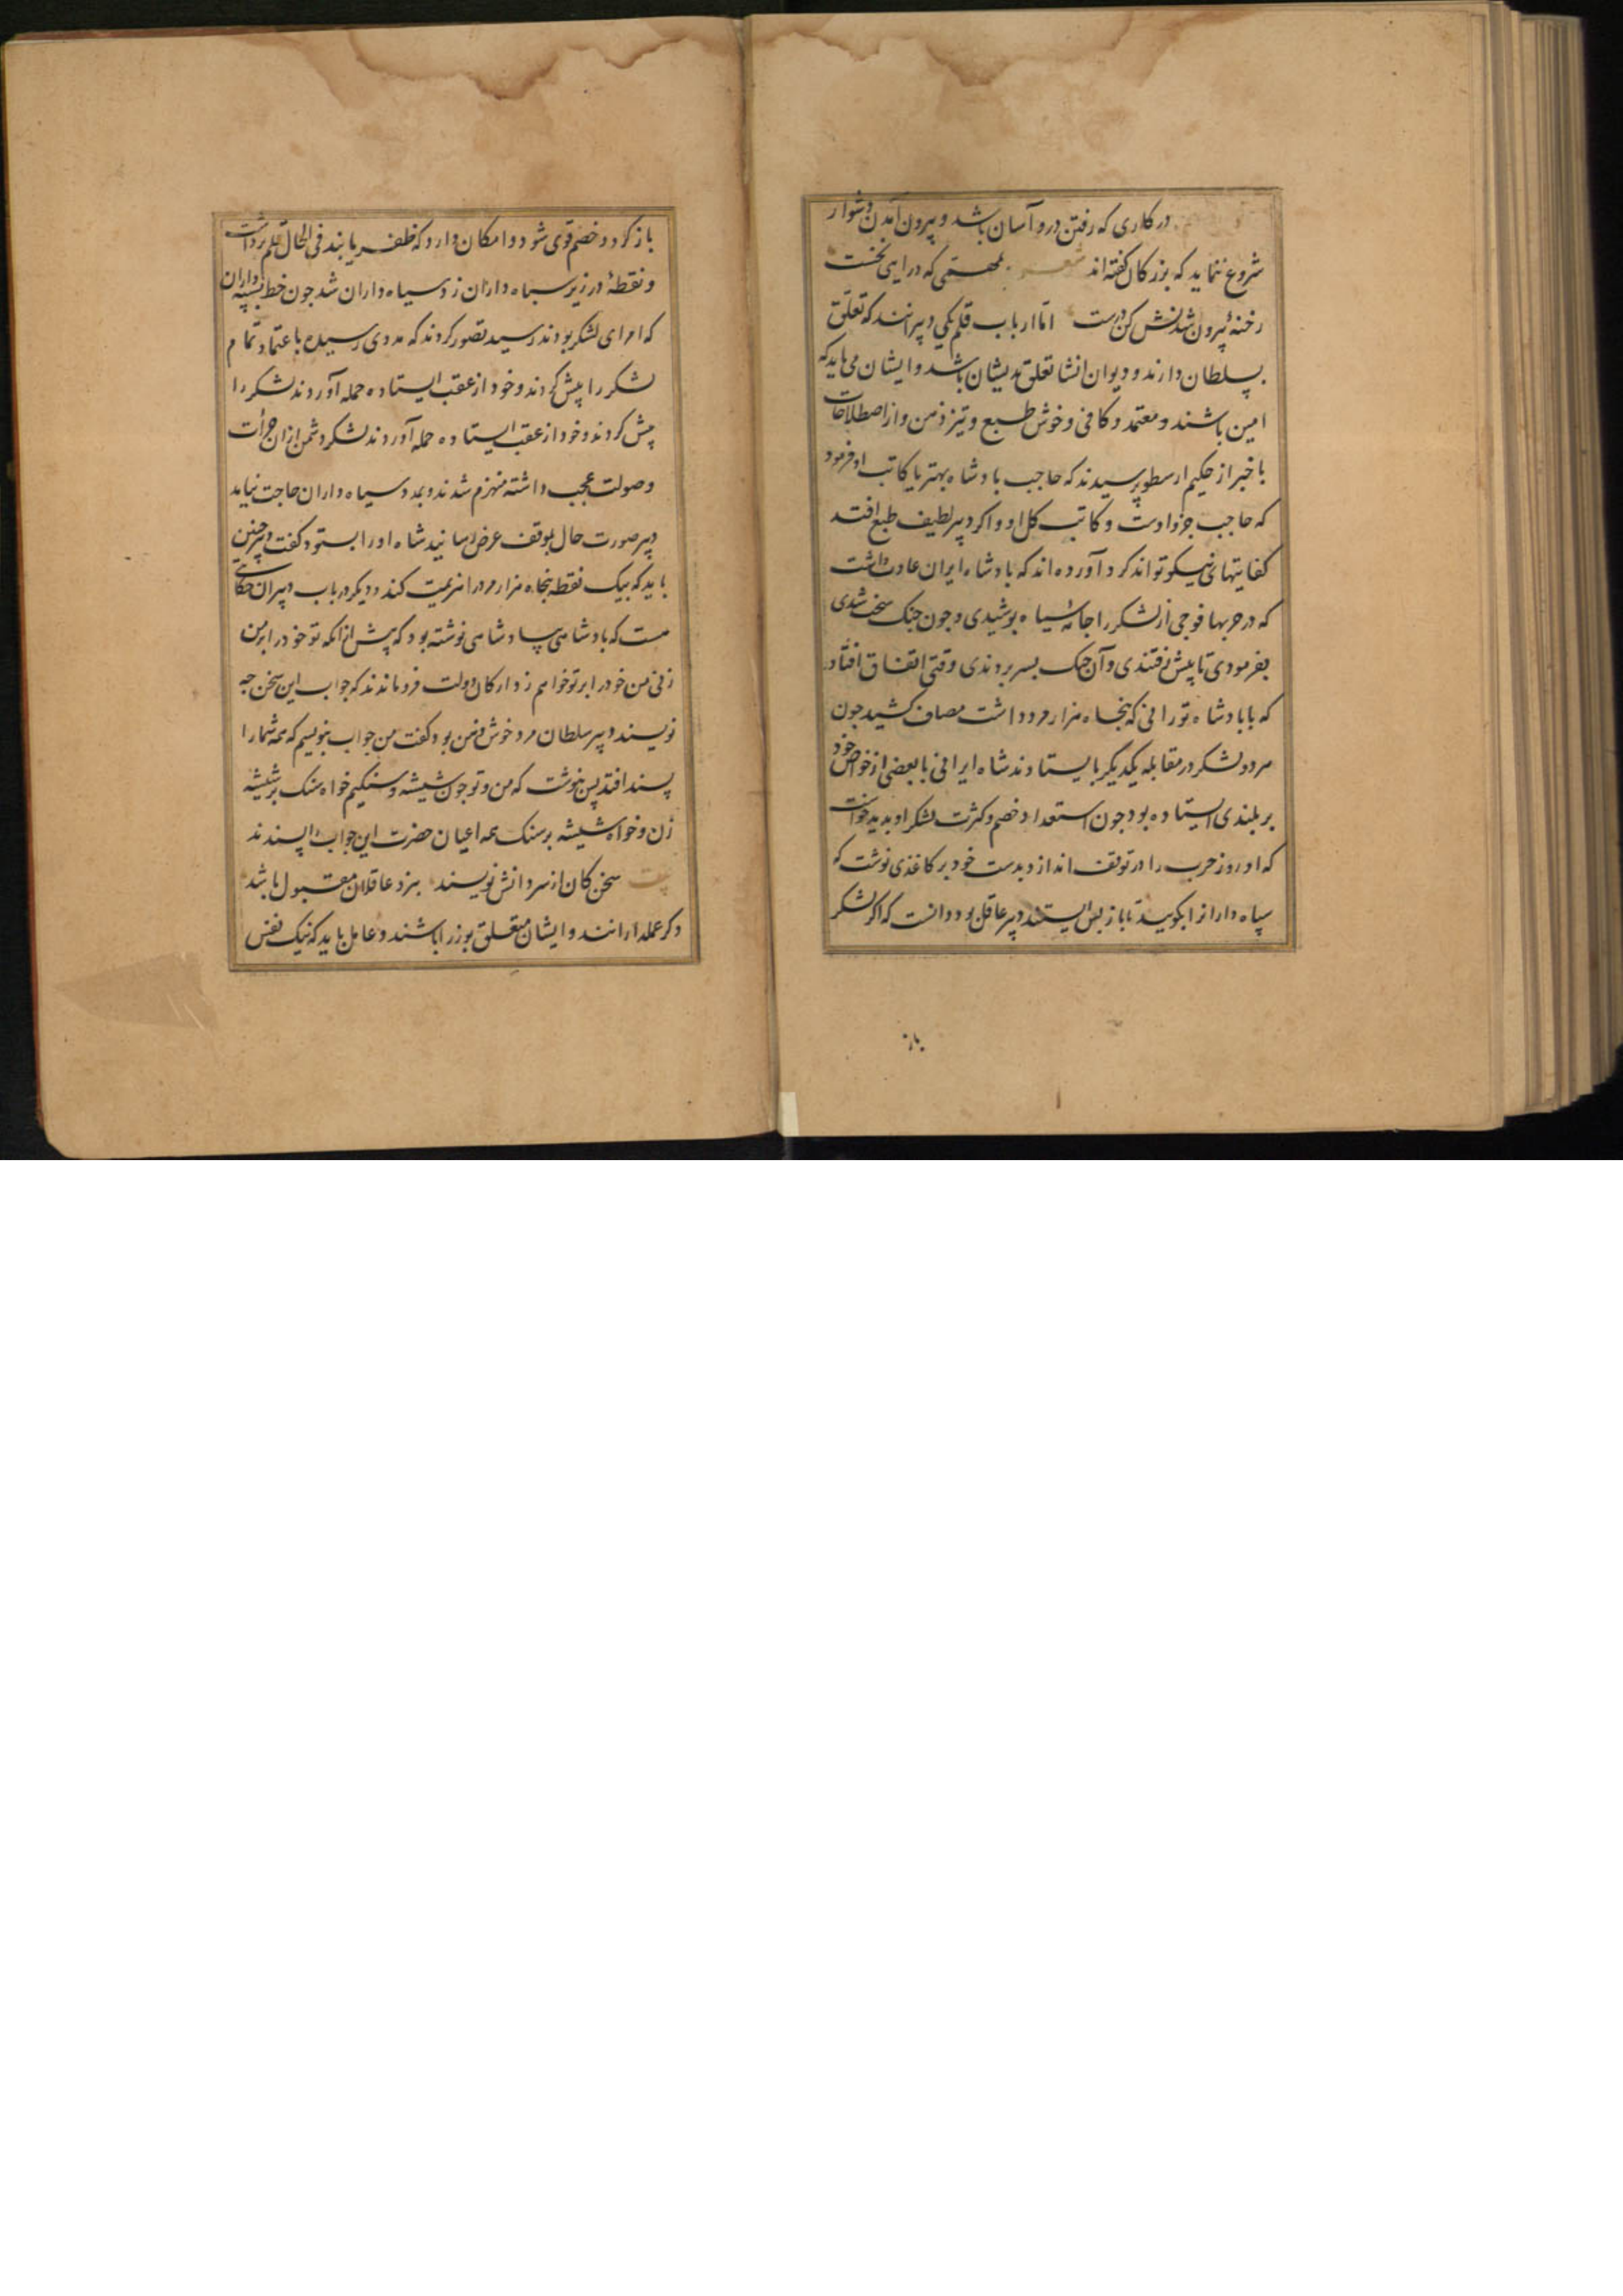 در کاری که رفتن درو آسان باشد و بیرون آمدن دشوار
شروع ننماید که بزرکان کفته‌اند شعر بمهمی که در آیی نخست
رخنهٔ بیرون شدنش کن درست اما ارباب قلم یکی دبیرانند که تعلق
بسلطان دارند و دیوان انشا تعلق بدیشان باشد و ایشان می باید که
امین باشند و معتمد و کافی و خوش طبع و تیز ذهن و از اصطلاحات
با خبر از حکیم ارسطو پرسیدند که حاجب بادشاه بهتر یا کاتب او فرمود
که حاجب جزو اوست و کاتب کل او و اکر دبیر لطیف طبع افتد
کفایتهای نیکو تواند کرد آورده اند که بادشاه ایران عادت داشت
که در حربها فوجی از لشکر را جامهٔ سیاه پوشیدی و چون جنک سخت شدی
بفرمودی تا پیش رفتندی و آن جنک بسر بردندی وقتی اتفاق افتاد
که با بادشاه تورانی که پنجاه هزار مرد داشت مصاف کشید چون
هر دو لشکر در مقابله یکدیکر بایستادند شاه ایرانی با بعضی از خواص خود
بر بلندی ایستاده بود چون استعداد خصم و کثرت لشکر او بدید خواست
که او روز حرب را در توقف اندازد بدست خود بر کاغذی نوشت که
سپاه داران را بکویید تا باز پس ایستند دبیر عاقل بود دانست که اکر لشکر
باز
باز کردد خصم قوی شود و امکان دارد که ظفر یابند فی الحال قلم برداشت
و نقطهٔ در زیر سپاه داران زد سیاه داران شد چون خط بسپه داران
که امرای لشکر بودند رسید تصور کردند که مددی رسیده با عتماد تمام
لشکر را پیش کردند و خود از عقب ایستاده حمله آوردند لشکر را
پیش کردند و خود از عقب ایستاده حمله آوردند لشکر دشمن از ان جرأت
وصولت عجب داشته منهزم شدند و بمدد سیاه داران حاجت نیامد
دبیر صورت حال بموقف عرض رسانید شاه او را بستود و کفت دبیر چنین
باید که بیک نقطه پنجاه هزار مرد را هزیمت کند و دیکر در باب دبیران حکایتی
هست که بادشاهی ببادشاهی نوشته بود که پیش از انکه تو خود را بر من
زنی من خود را بر تو خواهم زد ارکان دولت فرو ماندند که جواب این سخن چه
نویسند دبیر سلطان مرد خوش ذهن بود کفت من جواب بنویسم که همه شما را
پسند افتد پس بنوشت که من و تو چون شیشه و سنکیم خواه سنک بر شیشه
زن و خواه شیشه بر سنک همه اعیان حضرت این جواب را پسندند
بیت سخن کان از سر دانش نویسند بنزد عاقلان مقبول باشد
دکر عملدارانند و ایشان متعلق بوزرا باشند و عامل باید که نیک نفس